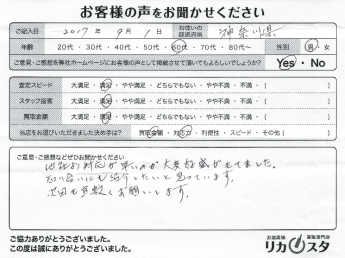 お客様の声をお聞かせください
ご記入日 2017年 9月 1日 お住いの都道府県 神奈川県
年齢 20代・30代・40代・50代・60代・70代・80代 性別 男・女
ご意見・ご感想を弊社ホームページにお客様の声として掲載させて頂いてもよろしいでしょうか? Yes・No
査定スピード 大満足・満足・やや満足・どちらでもない・やや不満・不満・( )
スタッフ接客 大満足・満足・やや満足・どちらでもない・やや不満・不満・( )
買取金額 大満足・満足・やや満足・どちらでもない・やや不満・不満・( )
当店をお選びいただきました決め手は? 買取金額・対応力・利便性・スピード・その他( )
ご意見・ご感想などぜひお聞かせください
他社より対応が早いのが大変好感がもてました。
知り合いにも紹介したいと思っています。
次回も宜敷くお願いします。
ご協力ありがとうございました。
この度は誠にありがとうございました。
お酒高価買取専門店
リカスタ